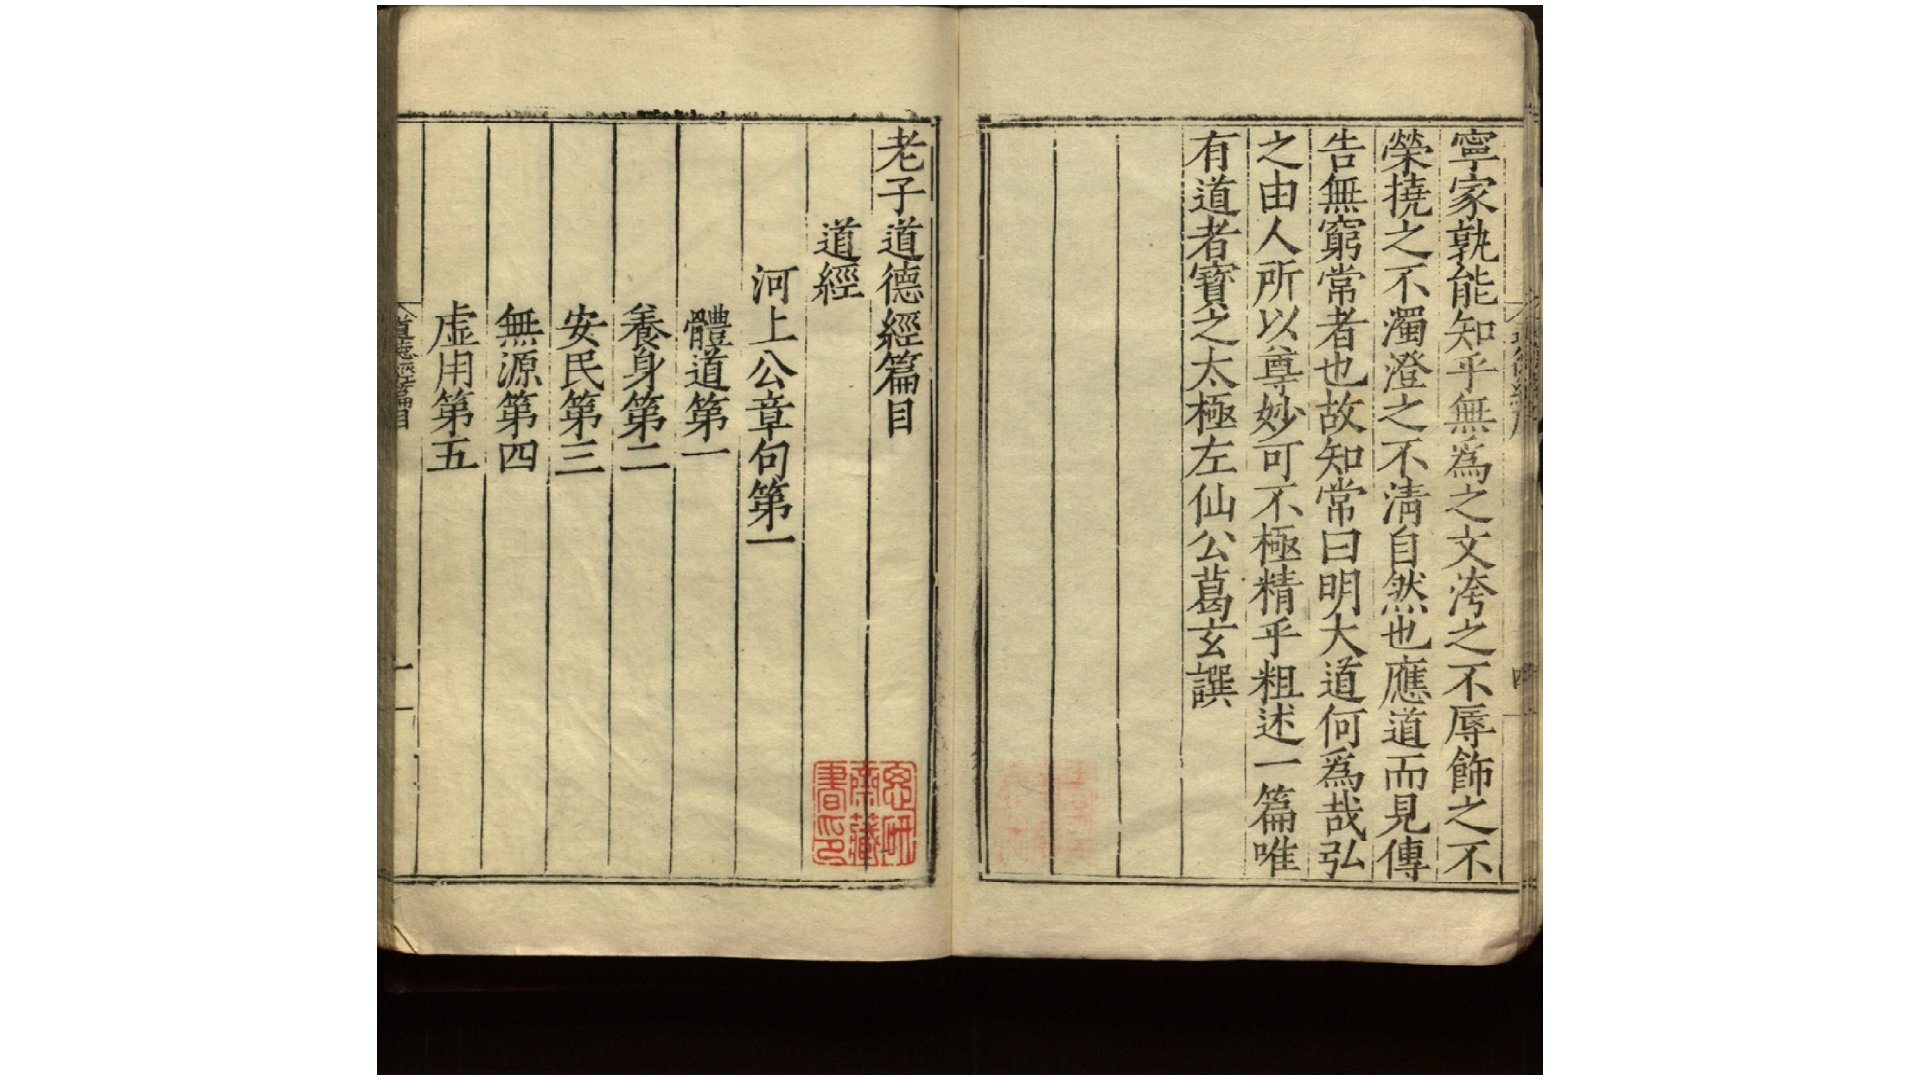 寧家孰能知乎無爲之文洿之不辱飾之不
榮撓之不濁澄之不淸自然也應道而見傳
告無窮常者也故知常曰明大道何爲哉弘
之由人所以尊妙可不極精乎粗述一篇唯
有道者寶之太極左仙公葛玄譔
老子道德經篇目
道經
河上公章句第一
體道第一
養身第二
安民第三
無源第四
虛用第五
道德經篇目
一